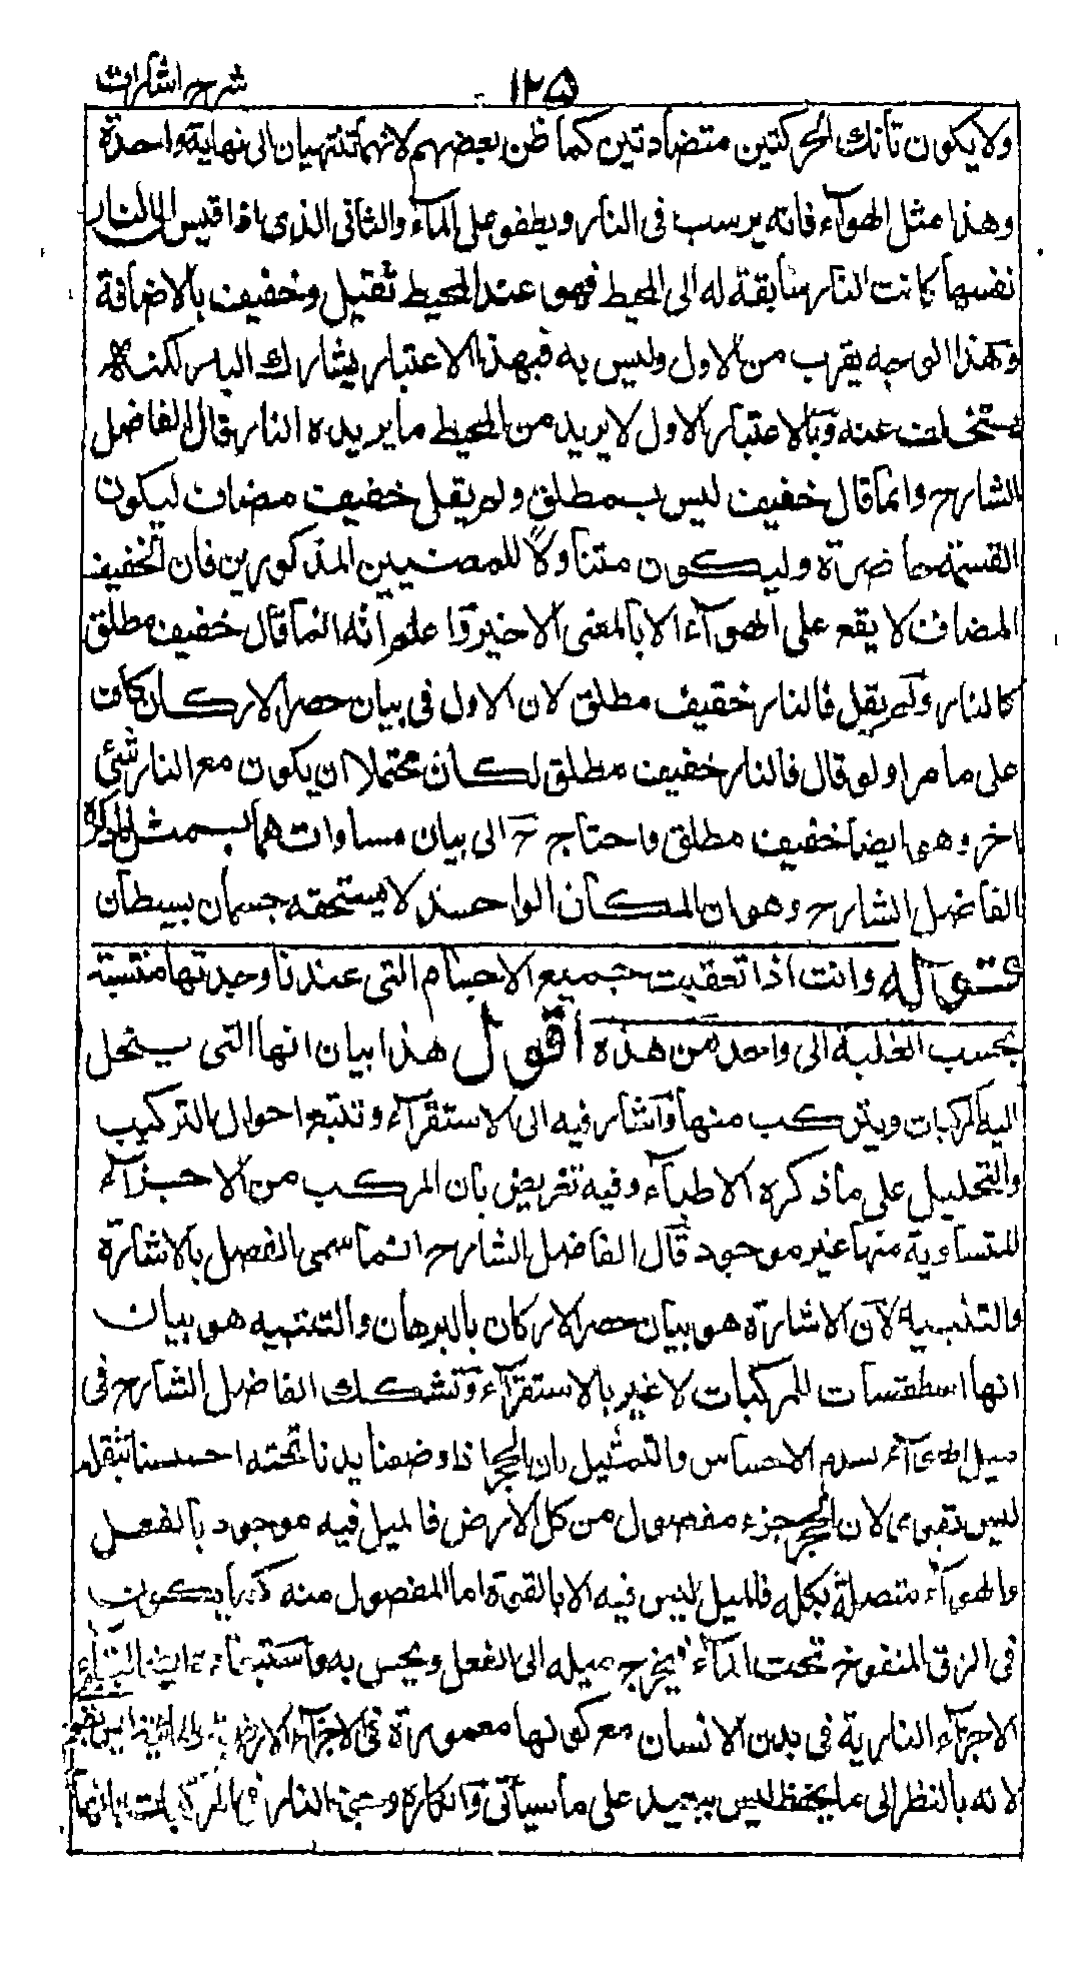 ١٢٥ شرح اشارات
ولا يكون تانك الحركتين متضادتين كما ظن بعضهم لانهما تنتهيان الى نهاية واحدة
وهذا مثل الهوآء فانه يرسب فى النار ويطفو على المآء والثانى الذى اذا قيس الى النار
نفسها كانت النار سابقة له الى المحيط فهو عند المحيط ثقيل وخفيف بالاضافة
وهذا الوجه يقرب من الاول وليس به فبهذا الاعتبار يشارك النار لكنه
يتخلف عنه وبالاعتبار الاول لا يريد من المحيط ما يريده النار قال الفاضل
الشارح وانما قال خفيف ليس بمطلق ولم يقل خفيف مضاف ليكون
القسمة حاضرة وليكون متناولاً للمعنيين المذكورين فان الخفيف
المضاف لا يقع على الهوآء الا بالمعنى الاخير واعلم انه انما قال خفيف مطلق
كالنار ولم يقل فالنار خفيف مطلق لان الاول فى بيان حصر الاركان كان
على ما مر ولو قال فالنار خفيف مطلق لكان محتملا ان يكون مع النار شئ
اخر وهو ايضا خفيف مطلق واحتاج ح الى بيان مساواتهما بمثل ما ذكره
الفاضل الشارح وهو ان المكان الواحد لا يستحقه جسمان بسيطان
قوله وانت اذا تعقبت جميع الاجسام التى عندنا وجدتها منتسبة
بحسب الغلبة الى واحد من هذه أقول هذا بيان انها التى ينحل
اليها المركبات ويتركب منها واشار فيه الى الاستقرآء وتتبع احوال التركيب
والتحليل على ما ذكره الاطبآء وفيه تعريض بان المركب من الاجزآء
المتساوية منها غير موجود قال الفاضل الشارح انما سمى الفصل بالاشارة
والتنبيه لان الاشارة هو بيان حصر الاركان بالبرهان والتنبيه هو بيان
انها اسطقسات للمركبات لا غير بالاستقرآء وتشكك الفاضل الشارح فى
ميل الهوآء بعدم الاحساس والتمثيل بان الحجر اذا وضعنا يدنا تحته احسسنا بثقله
ليس بقوى لان الحجر جزء مفصول من كل الارض فالميل فيه موجود بالفعل
والهوآء متصلة بكله فالميل ليس فيه الا بالقوة اما المفصول منه كما يكون
فى الزق المنفوخ تحت المآء فيخرج ميله الى الفعل ويحس به واستبعاده ايضا لبقاء
الاجزآء النارية فى بدن الانسان مع كونها مغمورة فى الاجزآء الارضية والمائية ليس
لانه بالنظر الى ما يحفظ ليس ببعيد على ما سيأتى وانكاره وجود النار فى المركبات بانها